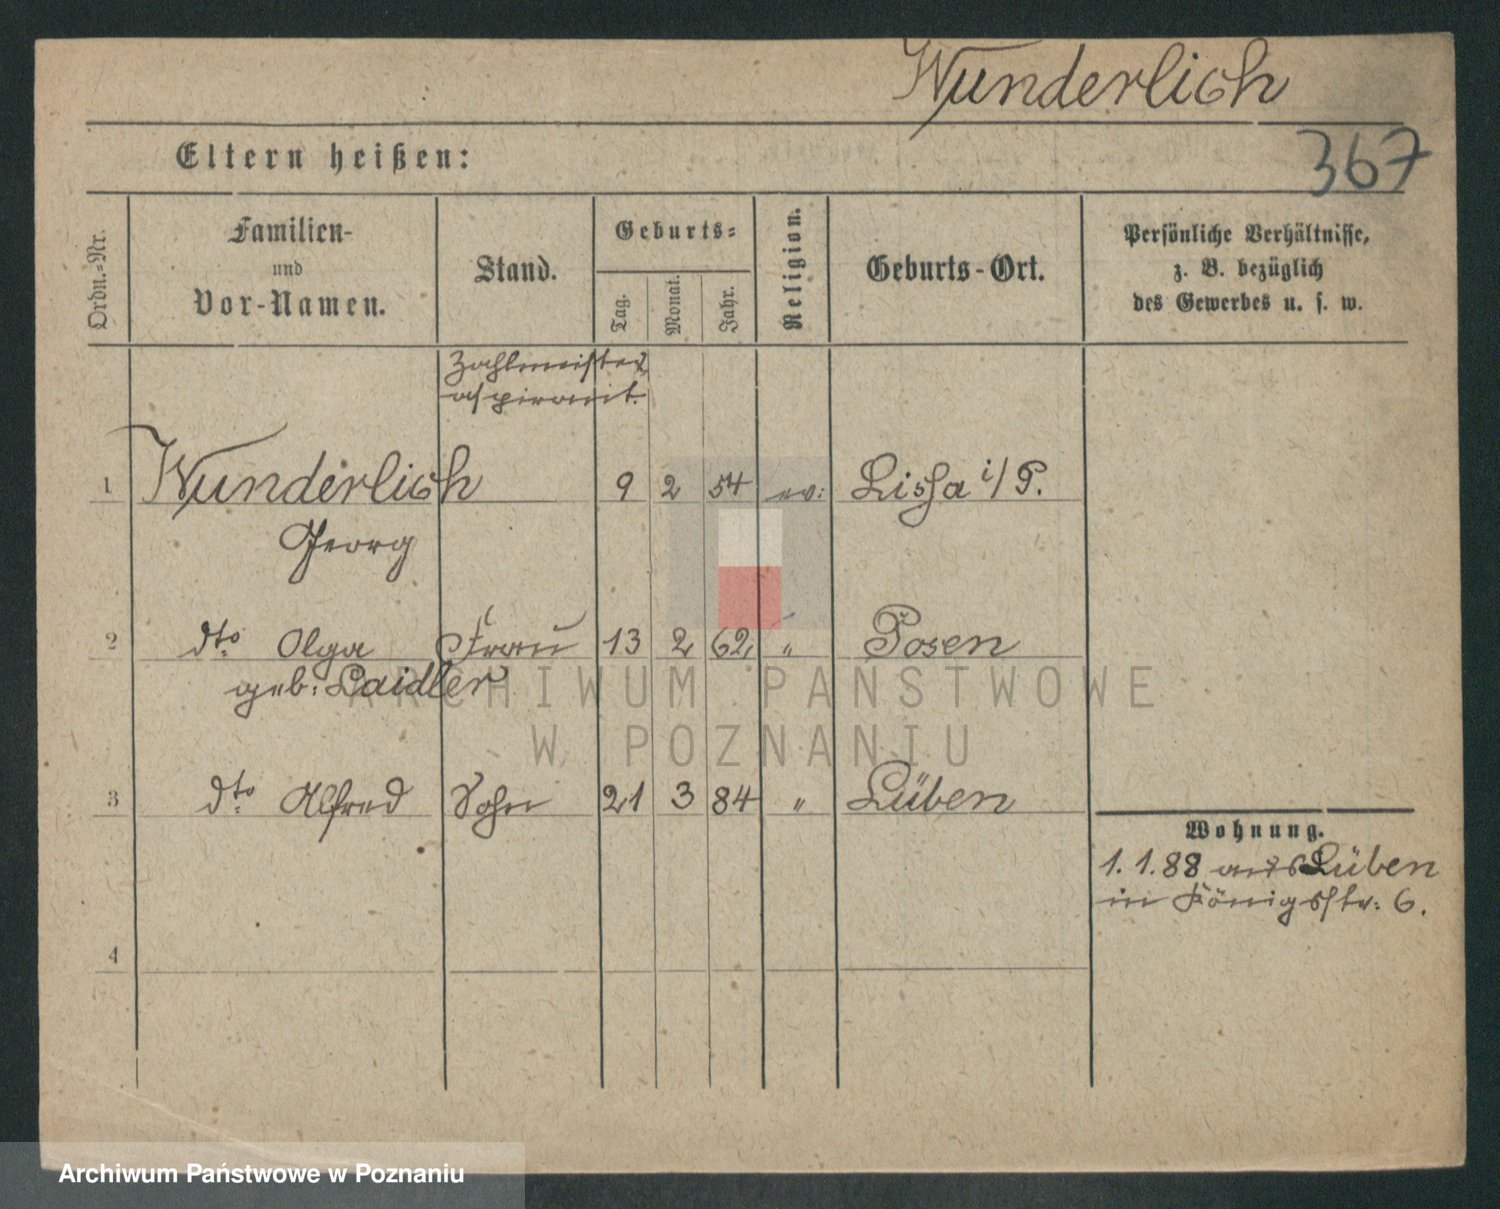 Wunderlich
367
Eltern heißen:
Ordn.-Nr.
Familien-
und
Vor-Namen.
Stand.
Geburts-
Tag.
Monat.
Jahr.
Religion.
Geburts-Ort.
Persönliche Verhältnisse,
z. B. bezüglich
des Gewerbes u. s. w.
Zahlmeister
aspirant.
1 Wunderlich 9 2 54 ev: Lissa i/P.
Georg
2 dto Olga Frau 13 2 62 " Posen
geb: Laidler
3 dto Alfred Sohn 21 3 84 " Lüben
Wohnung.
1. 1. 88 aus Lüben
in Königsstr: 6.
4
ARCHIWUM PAŃSTWOWE
W POZNANIU
Archiwum Państwowe w Poznaniu